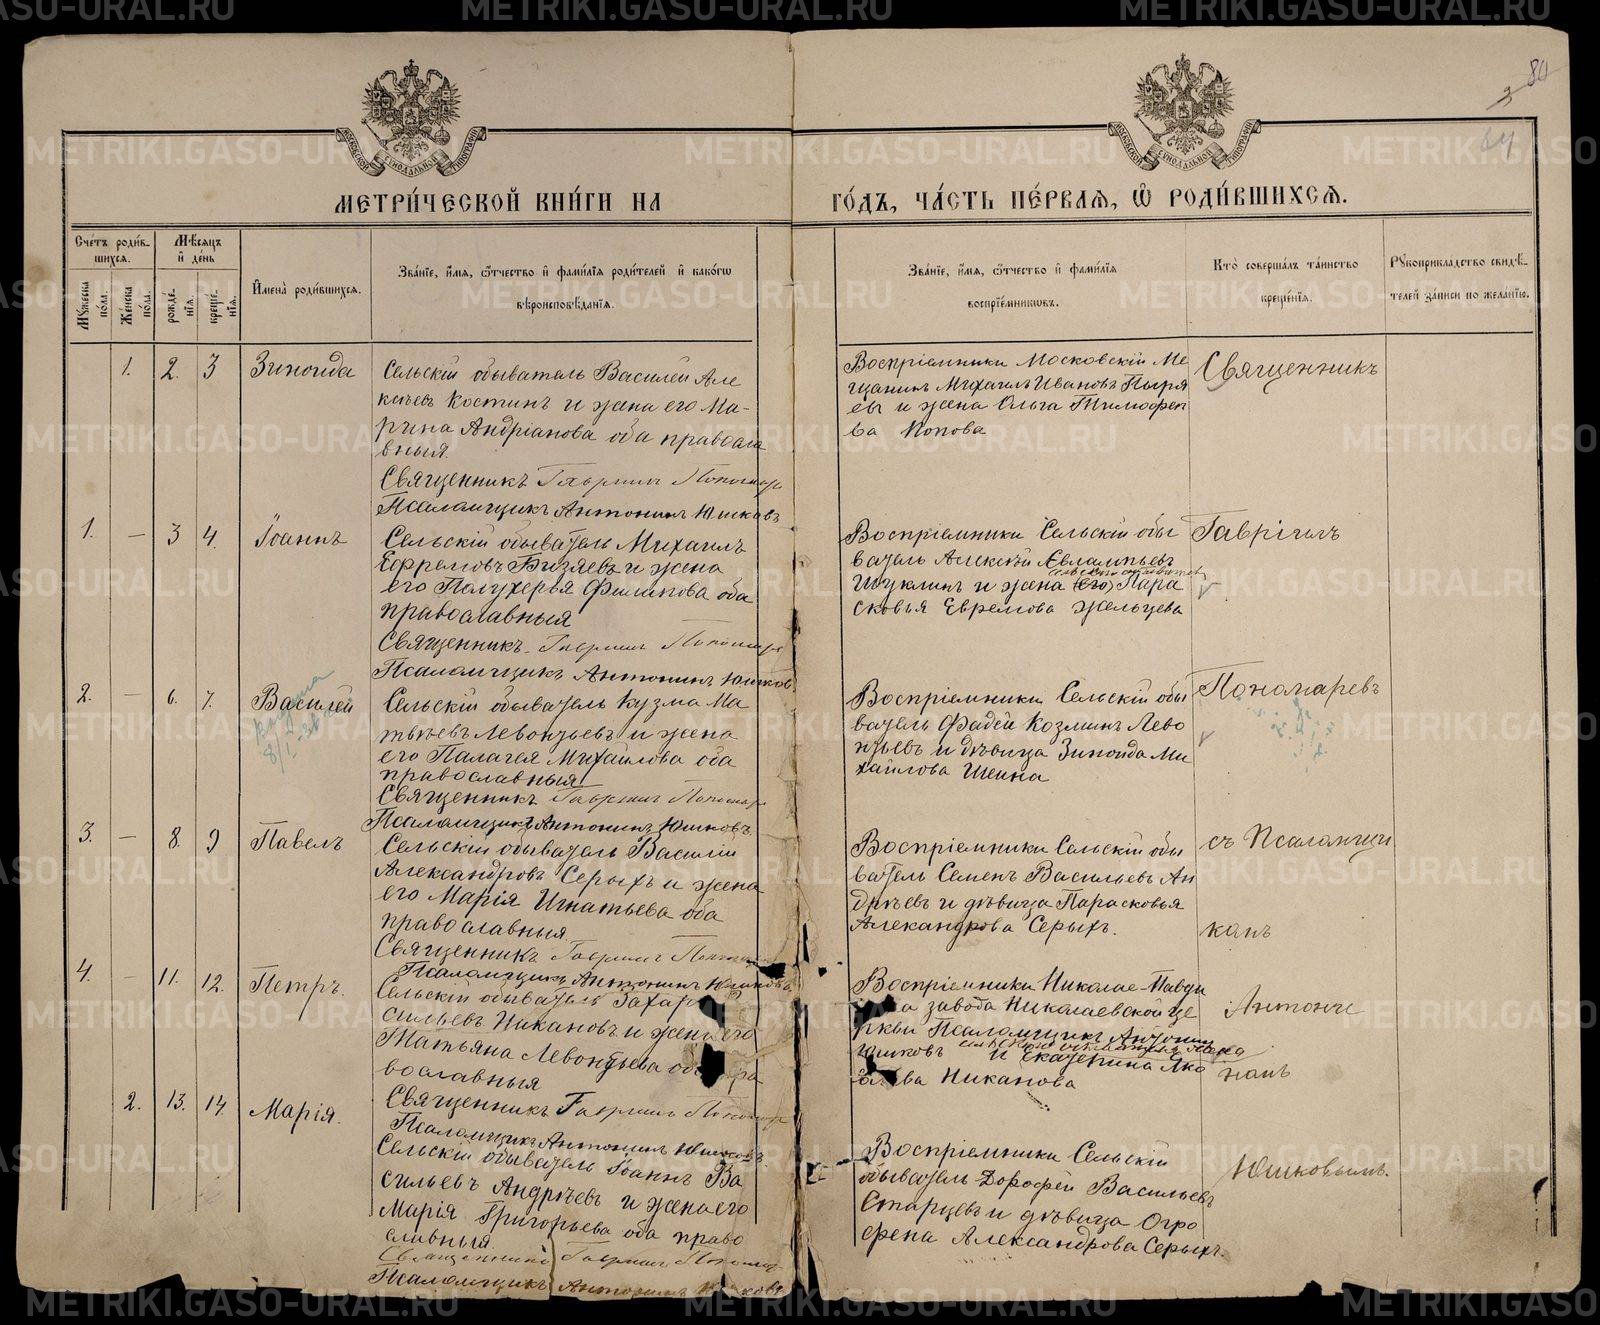 80
3
64
МЕТРИ́ЧЕСКОЙ КНИ́ГИ НА ГО́ДЪ, ЧА́СТЬ ПЕ́РВАЯ, Ѡ РОДИ́ВШИХСЯ.
Сче́тъ роди́в-
шихся.
Мѣ́сяцъ
и де́нь
Му́жеска
по́ла.
Же́нска
по́ла.
рожде́-
нїя.
креще́-
нїя.
Имена̀ роди́вшихся.
Зва́нїе, и́мя, ѻ́тчество и фами́лїя роди́телей и како́гѡ
вѣроисповѣ́данїя.
Зва́нїе, и́мя, ѻ́тчество и фами́лїя
воспрїе́мниковъ.
Кто̀ соверша́лъ та́инство
креще́нїя.
Рꙋкоприкла́дство свидѣ́-
телей за́писи по жела́нїю.
1. 2. 3 Зиноида
Сельскій обыватель Василей Але
ксѣевъ Костинъ и жена его Ма-
рина Андріанова оба правосла
вныя.
Священникъ Гавріилъ Пономарев
Псаломщикъ Антонинъ Юшковъ
Воспріемники Московскій Ме
щанинъ Михаилъ Ивановъ
и жена Ольга Тимофее
ва Попова
Священникъ
1. — 3 4. Іоаннъ
Сельскій обыватель Михаилъ
Ефремовъ Бизяевъ и жена
его Полухерья Филипова оба
православныя
Священникъ Гавріилъ Пономарев
Псаломщикъ Антонинъ Юшков
Воспріемники Сельскій обы
ватель Алексѣй Евлампьевъ
Шуклинъ и жена (его) Пара
сковья Евремова Жельцева
Гавріилъ
2. — 6. 7. Василей
Сельскій обыватель Кузма Ма
твѣевъ Левонтьевъ и жена
его Палагея Михаилова оба
православныя
Священникъ Гавріилъ Пономарев
Псаломщикъ Антонинъ Юшковъ.
Воспріемники Сельскій обы
ватель Фадей Козминъ Лево
нтьевъ и дѣвица Зиноида Ми
хаилова Шеина
Пономаревъ
3. — 8. 9 Павелъ
Сельскій обыватель Василій
Александровъ Серыхъ и жена
его Марія Игнатьева оба
православныя.
Священникъ Гавріилъ Пономарев
Псаломщикъ Антонинъ Юшковъ
Воспріемники Сельскій обы
ватель Семенъ Васильевъ Ан
дрѣевъ и дѣвица Парасковья
Александрова Серыхъ.
съ Псаломщи
комъ
4. — 11. 12. Петръ.
Сельскій обыватель Захаръ
сильевъ Никановъ и жена его
Татьяна Левонтьева оба пра
вославныя
Священникъ Гавріилъ Пономарев
Псаломщикъ Антонинъ Юшковъ.
Воспріемники Николае-Павди
нска завода Николаевской це
ркви Псаломщикъ Антонин
Юшковъ и Екатерина Яко
влева Никанова
Антони
номъ
2. 13. 14. Марія.
Сельскій обыватель Іоаннъ Ва
сильевъ Андрѣевъ и жена его
Марія Григорьева оба право
славныя.
Священникъ Гавріилъ Пономарев
Псаломщикъ Антонинъ Юшковъ
Воспріемники Сельскій
обыватель Дорофей Васильевъ
Старцевъ и дѣвица Огро
фена Александрова Серыхъ.
Юшковымъ.
METRIKI.GASO-URAL.RU